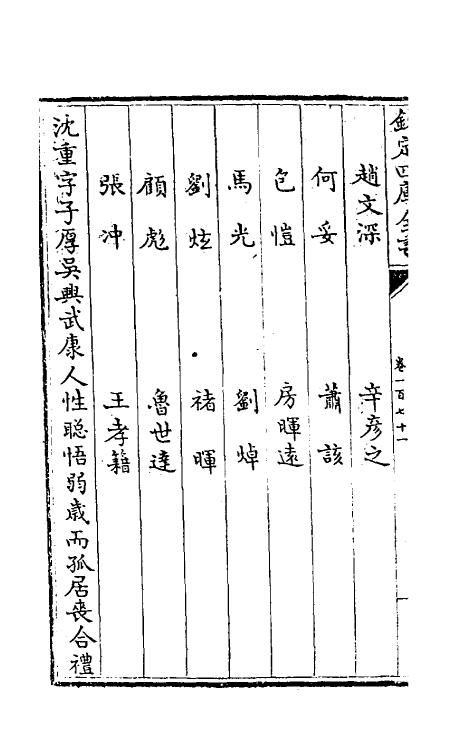 欽定四庫全書
卷一百七十一
趙文深　辛彥之
何妥　蕭該
包愷　房暉遠
馬光　劉焯
劉炫　褚暉
顧彪　魯世達
張沖　王孝籍
沈重字子厚吳興武康人性聰悟弱歲而孤居喪合禮